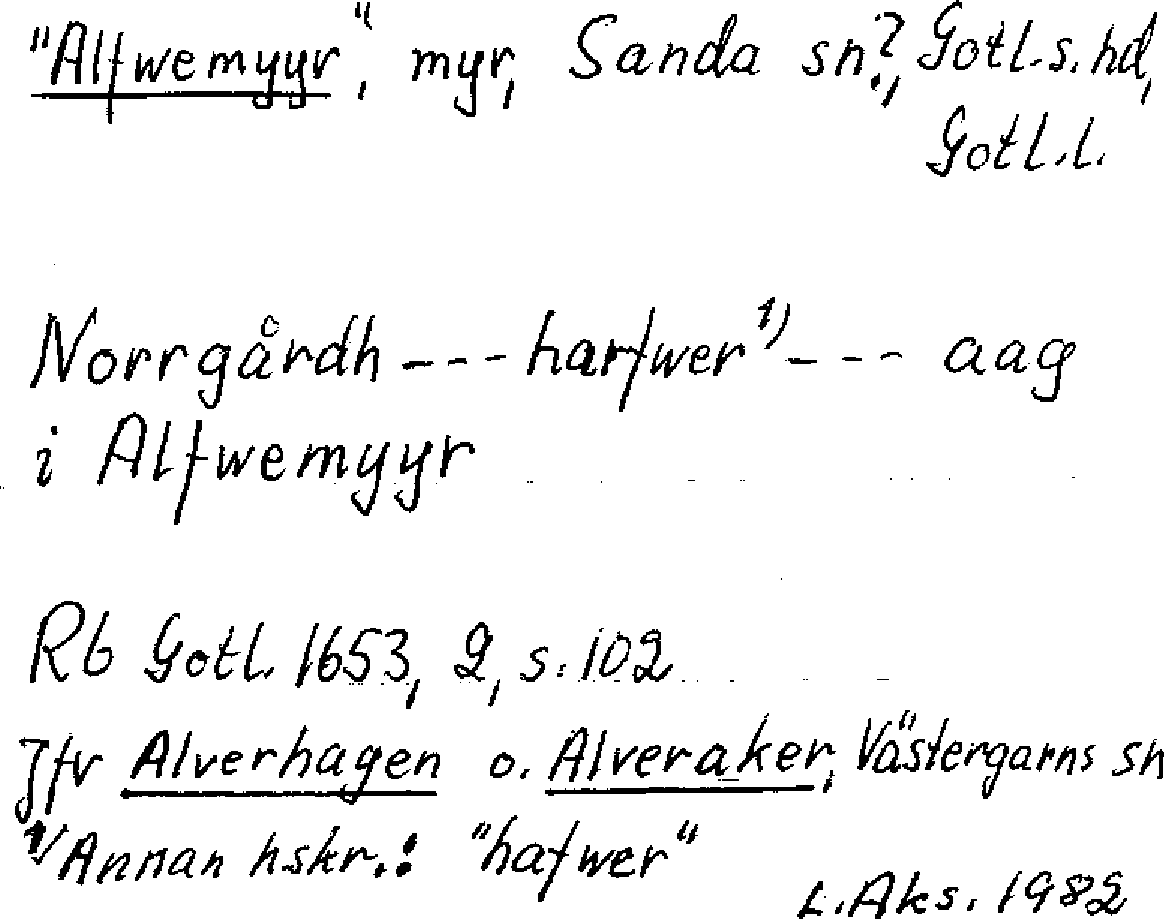 "Alfwemyyr", myr, Sanda sn?, Gotl.s. hd,
Gotl.l.
Norrgårdh --- harfwer¹⁾ --- aag
i Alfwemyyr
Rb Gotl. 1653, 2, s. 102
Jfr Alverhagen o. Alveraker, Västergarns sn
1) Annan hskr.: "hafwer"
L. Aks. 1982